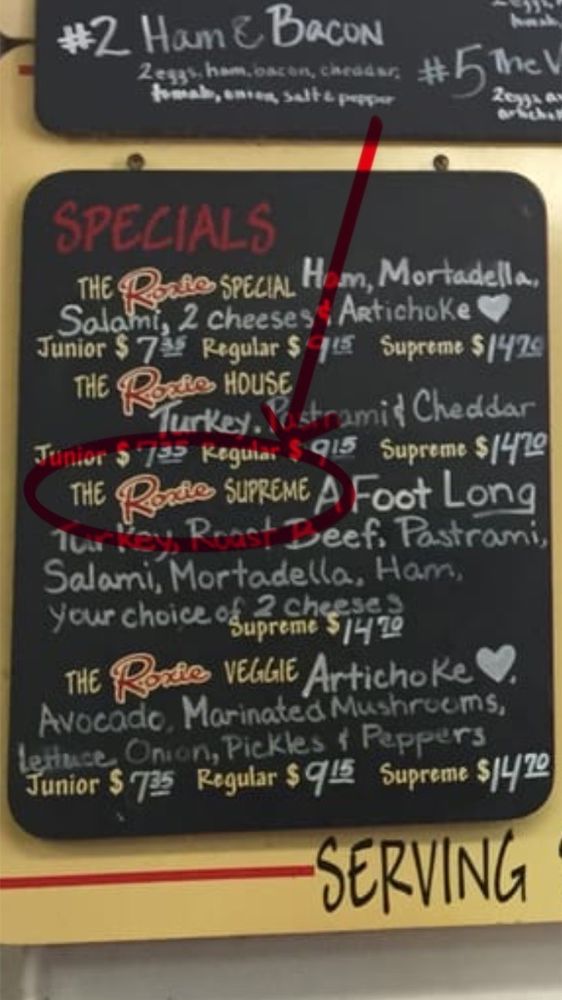 #2 Ham & Bacon
2 eggs, ham, bacon, cheddar,
tomato, onion, salt & pepper
#5 The V
2 eggs
SPECIALS
THE Roxie SPECIAL Ham, Mortadella,
Salami, 2 cheeses & Artichoke ♥
Junior $7.35 Regular $9.15 Supreme $14.70
THE Roxie HOUSE
Turkey, Pastrami & Cheddar
Junior $7.35 Regular $9.15 Supreme $14.70
THE Roxie SUPREME A Foot Long
Turkey, Roast Beef, Pastrami,
Salami, Mortadella, Ham,
your choice of 2 cheeses
Supreme $14.70
THE Roxie VEGGIE Artichoke ♥,
Avocado, Marinated Mushrooms,
lettuce Onion, Pickles & Peppers
Junior $7.35 Regular $9.15 Supreme $14.70
SERVING